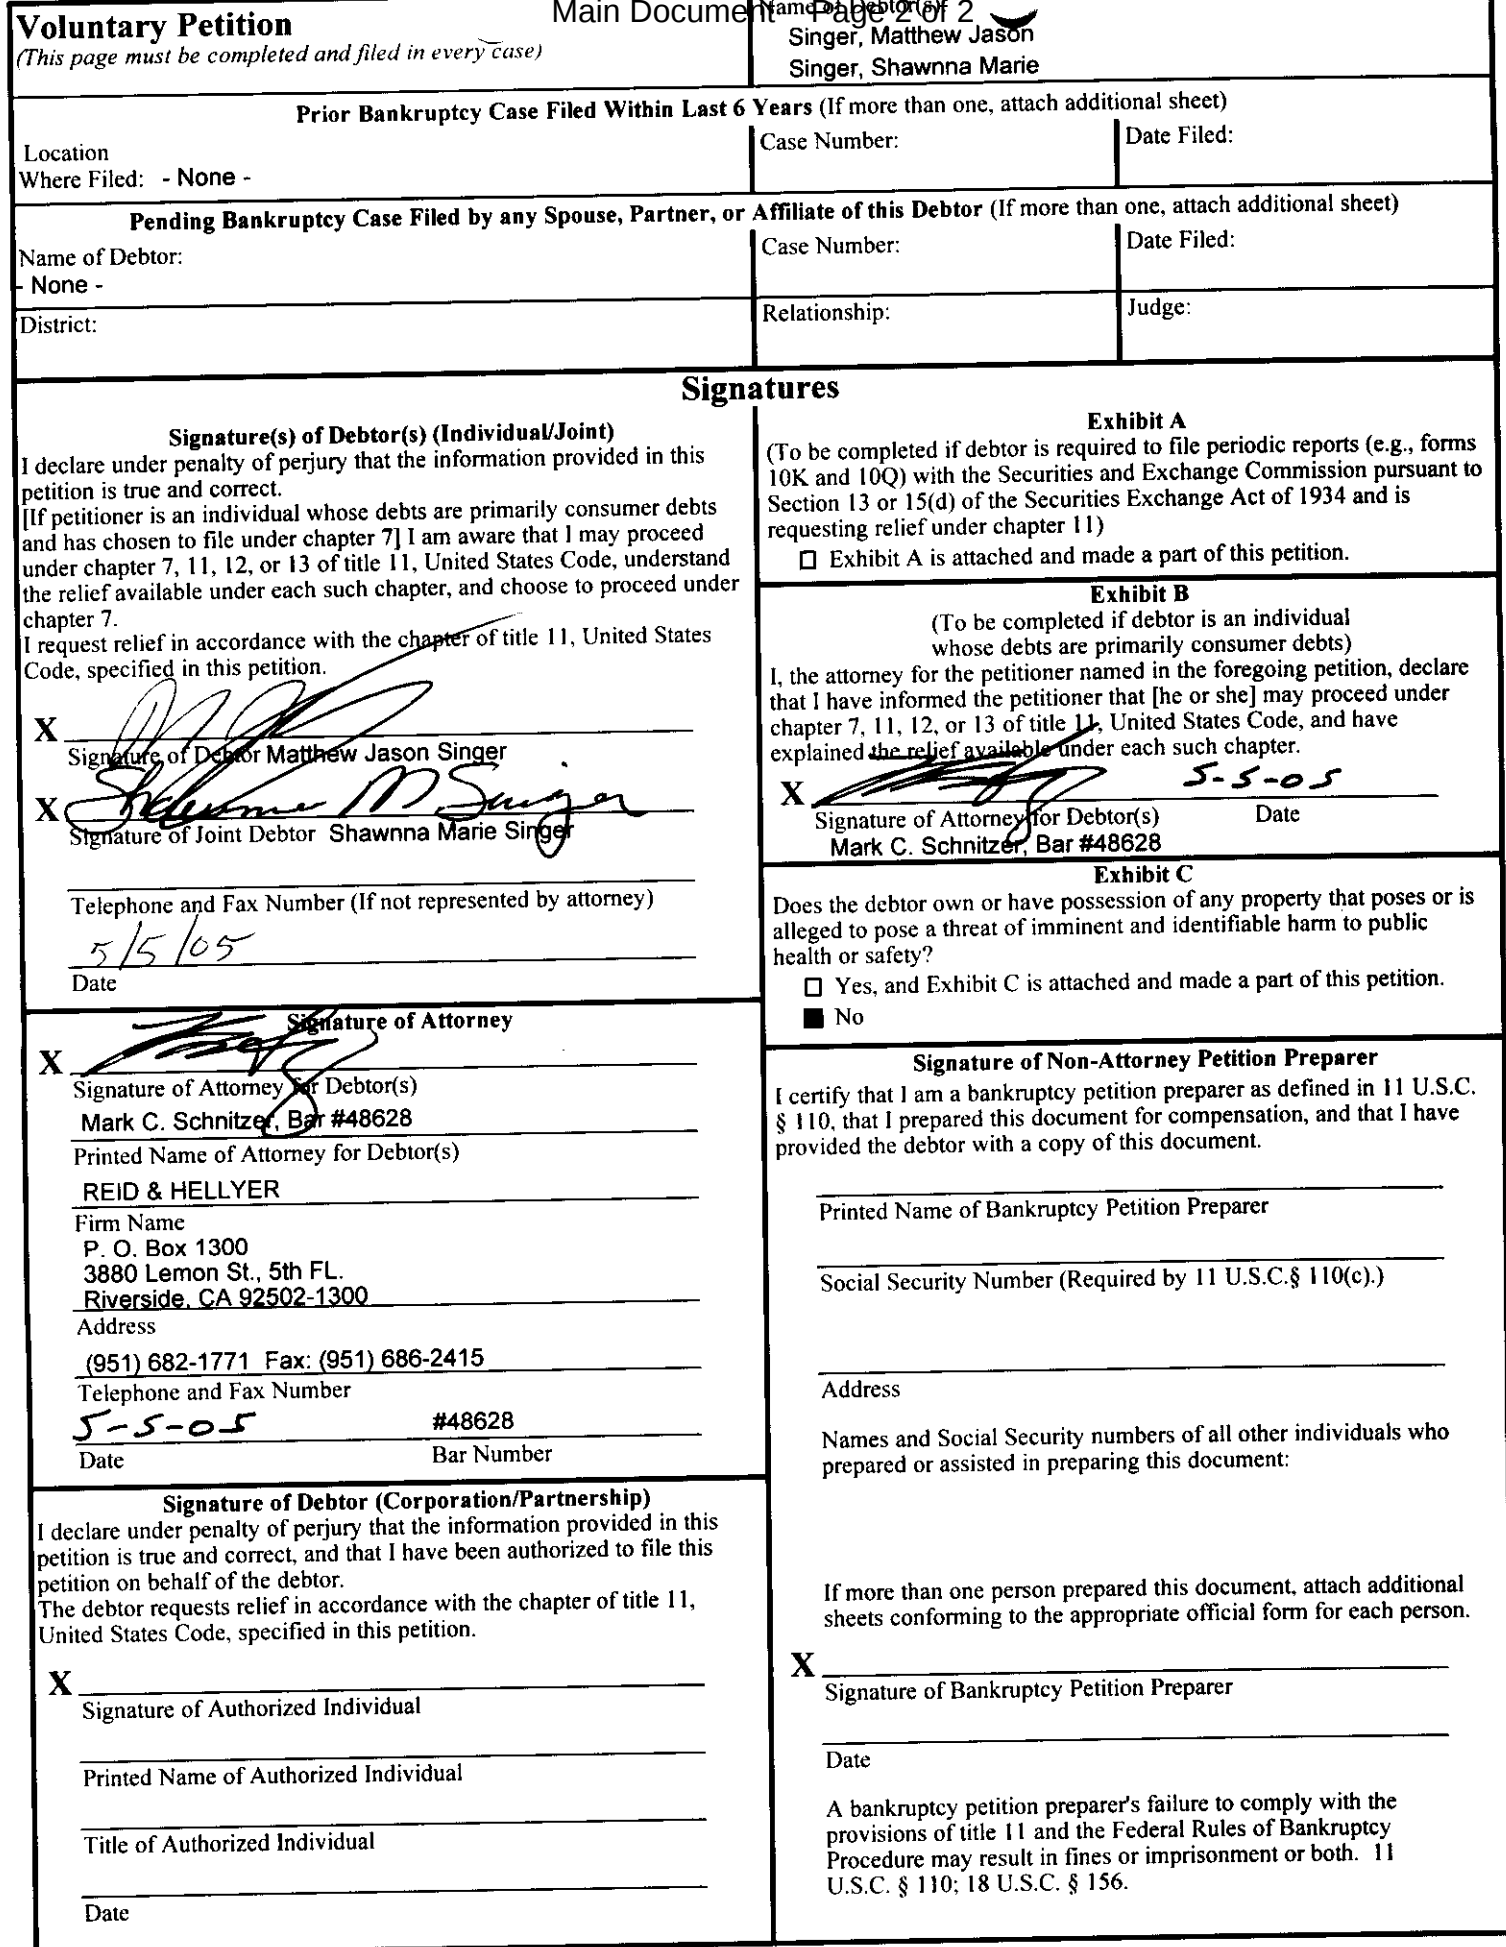 Main Document Page 2 of 2
Voluntary Petition
(This page must be completed and filed in every case)
Name of Debtor(s):
Singer, Matthew Jason
Singer, Shawnna Marie
Prior Bankruptcy Case Filed Within Last 6 Years (If more than one, attach additional sheet)
Location
Where Filed: - None -
Case Number:
Date Filed:
Pending Bankruptcy Case Filed by any Spouse, Partner, or Affiliate of this Debtor (If more than one, attach additional sheet)
Name of Debtor:
- None -
Case Number:
Date Filed:
District:
Relationship:
Judge:
Signatures
Signature(s) of Debtor(s) (Individual/Joint)
I declare under penalty of perjury that the information provided in this
petition is true and correct.
[If petitioner is an individual whose debts are primarily consumer debts
and has chosen to file under chapter 7] I am aware that I may proceed
under chapter 7, 11, 12, or 13 of title 11, United States Code, understand
the relief available under each such chapter, and choose to proceed under
chapter 7.
I request relief in accordance with the chapter of title 11, United States
Code, specified in this petition.
X
Signature of Debtor Matthew Jason Singer
X Shawnna M Singer
Signature of Joint Debtor Shawnna Marie Singer
Telephone and Fax Number (If not represented by attorney)
5/5/05
Date
Signature of Attorney
X
Signature of Attorney for Debtor(s)
Mark C. Schnitzer, Bar #48628
Printed Name of Attorney for Debtor(s)
REID & HELLYER
Firm Name
P. O. Box 1300
3880 Lemon St., 5th FL.
Riverside, CA 92502-1300
Address
(951) 682-1771 Fax: (951) 686-2415
Telephone and Fax Number
5-5-05 #48628
Date Bar Number
Signature of Debtor (Corporation/Partnership)
I declare under penalty of perjury that the information provided in this
petition is true and correct, and that I have been authorized to file this
petition on behalf of the debtor.
The debtor requests relief in accordance with the chapter of title 11,
United States Code, specified in this petition.
X
Signature of Authorized Individual
Printed Name of Authorized Individual
Title of Authorized Individual
Date
Exhibit A
(To be completed if debtor is required to file periodic reports (e.g., forms
10K and 10Q) with the Securities and Exchange Commission pursuant to
Section 13 or 15(d) of the Securities Exchange Act of 1934 and is
requesting relief under chapter 11)
☐ Exhibit A is attached and made a part of this petition.
Exhibit B
(To be completed if debtor is an individual
whose debts are primarily consumer debts)
I, the attorney for the petitioner named in the foregoing petition, declare
that I have informed the petitioner that [he or she] may proceed under
chapter 7, 11, 12, or 13 of title 11, United States Code, and have
explained the relief available under each such chapter.
X 5-5-05
Signature of Attorney for Debtor(s) Date
Mark C. Schnitzer, Bar #48628
Exhibit C
Does the debtor own or have possession of any property that poses or is
alleged to pose a threat of imminent and identifiable harm to public
health or safety?
☐ Yes, and Exhibit C is attached and made a part of this petition.
■ No
Signature of Non-Attorney Petition Preparer
I certify that I am a bankruptcy petition preparer as defined in 11 U.S.C.
§ 110, that I prepared this document for compensation, and that I have
provided the debtor with a copy of this document.
Printed Name of Bankruptcy Petition Preparer
Social Security Number (Required by 11 U.S.C.§ 110(c).)
Address
Names and Social Security numbers of all other individuals who
prepared or assisted in preparing this document:
If more than one person prepared this document, attach additional
sheets conforming to the appropriate official form for each person.
X
Signature of Bankruptcy Petition Preparer
Date
A bankruptcy petition preparer's failure to comply with the
provisions of title 11 and the Federal Rules of Bankruptcy
Procedure may result in fines or imprisonment or both. 11
U.S.C. § 110; 18 U.S.C. § 156.